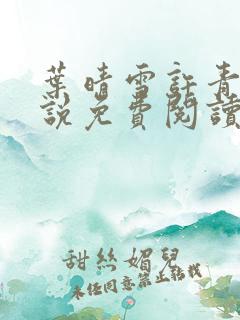 葉晴雪許青
說免費閱讀
甜絲媚兒
未經同意禁止轉載